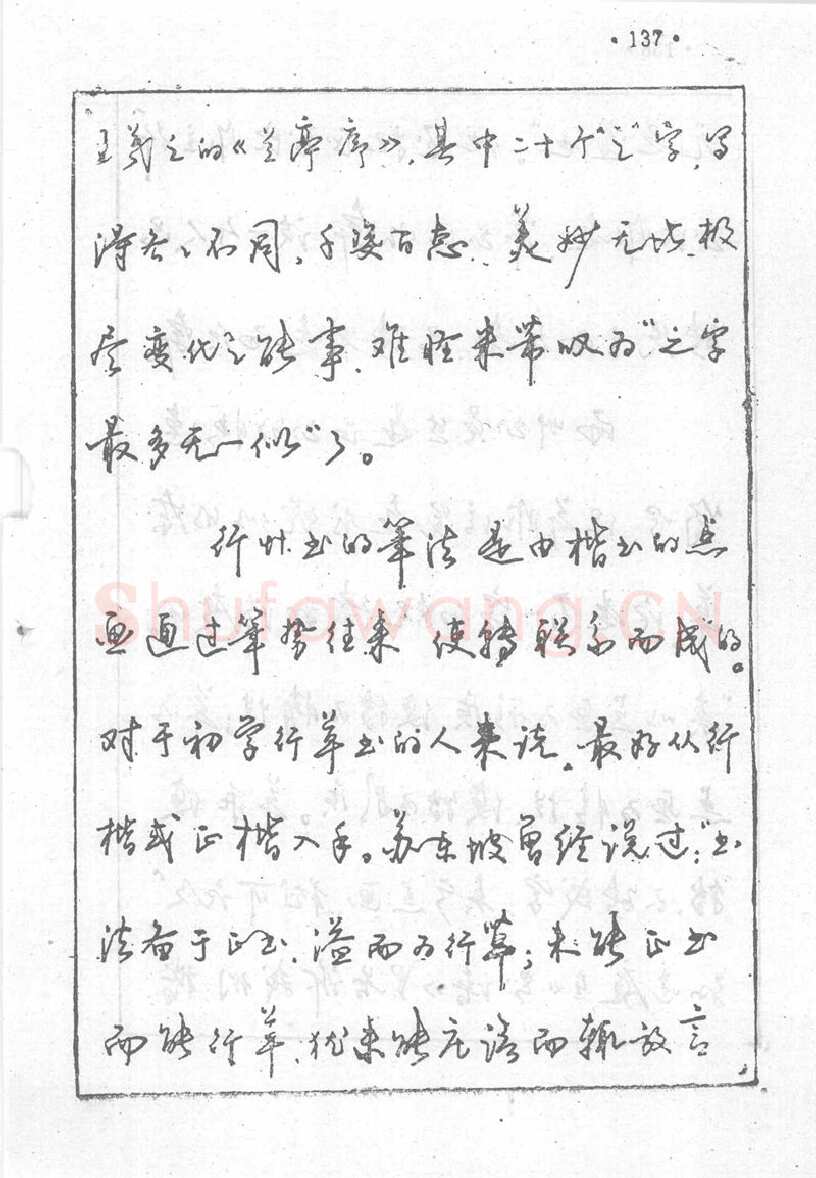 ·137·
王羲之的《兰亭序》,其中二十个“之”字,写
得各々不同,千姿百态,美妙无比,极
尽变化之能事,难怪米芾叹为“之字
最多无一似”了。
行草书的笔法是由楷书的点
画通过笔势往来 使转联系而成的。
对于初学行草书的人来说,最好从行
楷或正楷入手。苏东坡曾经说过:“书
法备于正书,溢而为行草;未能正书
而能行草,犹未能庄语而辄放言,
Shufawang.CN